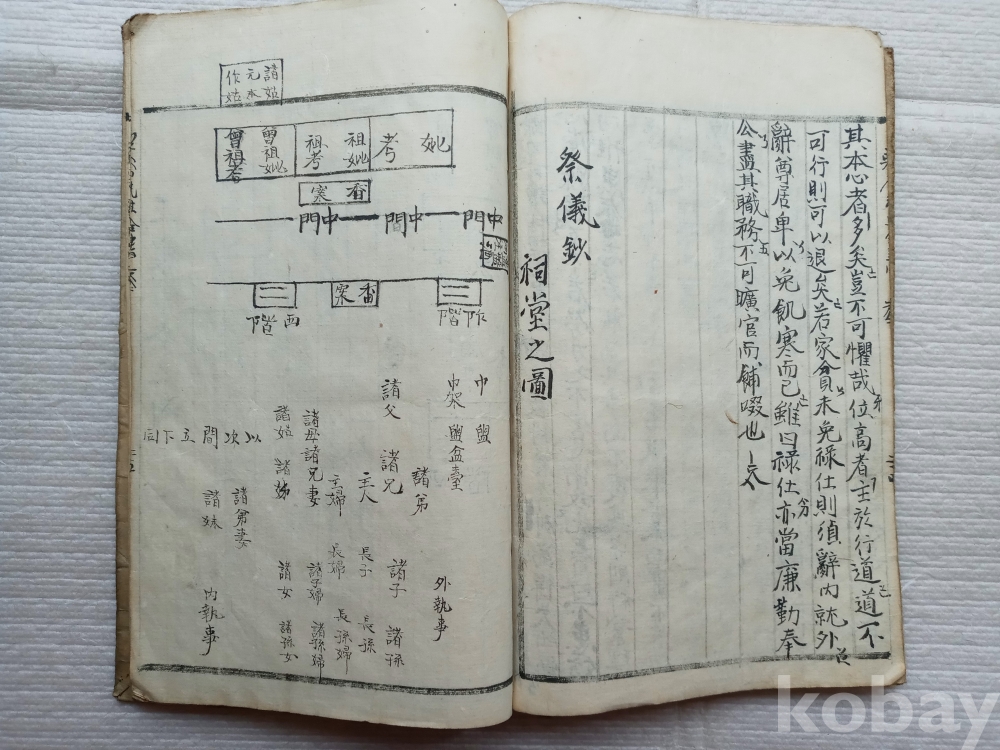 其本心者多矣豈不可懼哉位高者主於行道道不
可行則可以退矣若家貧未免祿仕則須辭內就外
辭尊居卑以免飢寒而已雖曰祿仕亦當廉勤奉
公盡其職務不可曠官而餔啜也
祭儀鈔
祠堂之圖
諸姑
元本
作姑
妣
考
祖妣
祖考
曾祖妣
曾祖考
香案
中門
中門
中門
香案
阼階
西階下
巾 盥
巾架 盥盆臺
諸父 諸兄
諸弟
主人
主婦
諸母諸兄妻
諸姑 諸姊
以次間立下同
諸弟妻
諸妹
外執事
諸子 諸孫
長子 長孫
長婦 長孫婦
諸子婦 諸孫婦
諸女 諸孫女
內執事
kobay